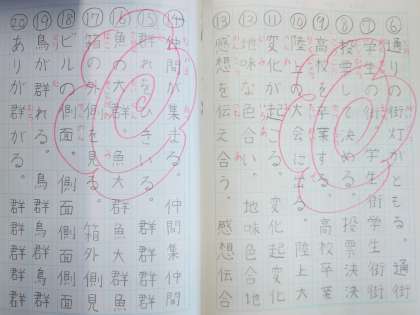 ⑥通りの街灯がともる。通街
⑦学生の街学生街学生街
⑧投票し決める。投票決決
⑨高校を卒業する。高校卒業
⑩陸上の大会に出る。陸上大
⑪変化が起こる。変化起変化
⑫地味な色合い。地味色合地
⑬感想を伝え合う。感想伝合
⑭仲間が集まる。仲間集仲間
⑮群れをひきいる。群群群
⑯魚の大群。魚大群魚大群魚
⑰箱の外側を見る。箱外側見
⑱ビルの側面。側面側面側面
⑲鳥が群れる。鳥群鳥群鳥群
⑳ありが群がる。群群群群